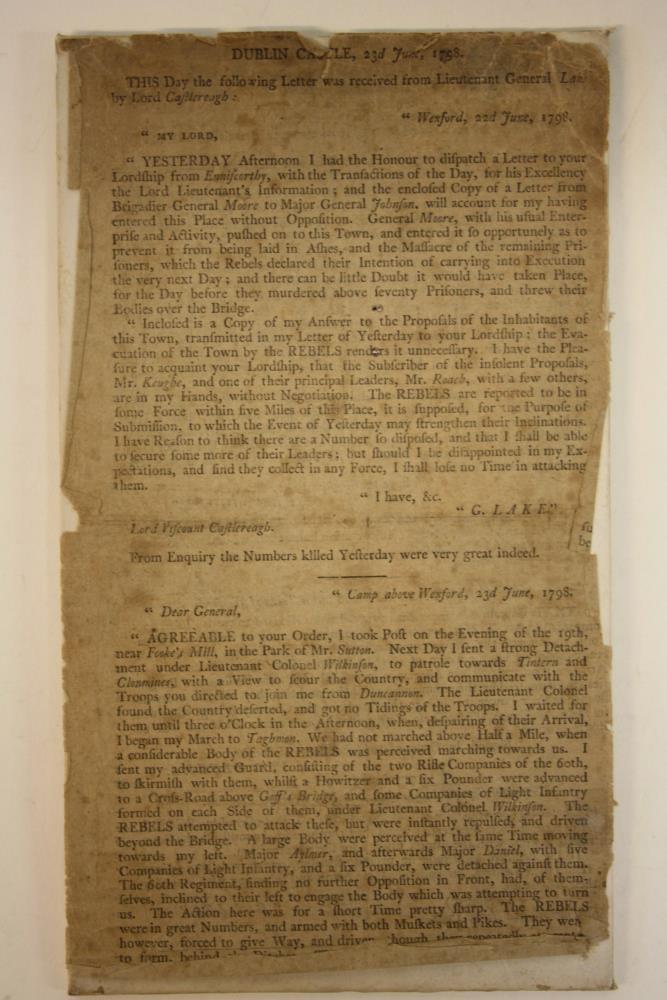 DUBLIN CASTLE, 23d June, 1798.
THIS Day the following Letter was received from Lieutenant General Lake
by Lord Caſtlereagh:
“ Wexford, 22d June, 1798.
“ MY LORD,
“ YESTERDAY Afternoon I had the Honour to diſpatch a Letter to your
Lordſhip from Enniſcorthy, with the Tranſactions of the Day, for his Excellency
the Lord Lieutenant's Information; and the encloſed Copy of a Letter from
Brigadier General Moore to Major General Johnſon, will account for my having
entered this Place without Oppoſition. General Moore, with his uſual Enter-
priſe and Activity, puſhed on to this Town, and entered it ſo opportunely as to
prevent it from being laid in Aſhes, and the Maſſacre of the remaining Pri-
ſoners, which the Rebels declared their Intention of carrying into Execution
the very next Day; and there can be little Doubt it would have taken Place,
for the Day before they murdered above ſeventy Priſoners, and threw their
Bodies over the Bridge.
“ Incloſed is a Copy of my Anſwer to the Propoſals of the Inhabitants of
this Town, tranſmitted in my Letter of Yeſterday to your Lordſhip; the Eva-
cuation of the Town by the REBELS renders it unneceſſary. I have the Plea-
ſure to acquaint your Lordſhip, that the Subſcriber of the inſolent Propoſals,
Mr. Keughe, and one of their principal Leaders, Mr. Roach, with a few others,
are in my Hands, without Negotiation. The REBELS are reported to be in
ſome Force within five Miles of this Place, it is ſuppoſed, for the Purpoſe of
Submiſſion, to which the Event of Yeſterday may ſtrengthen their Inclinations.
I have Reaſon to think there are a Number ſo diſpoſed, and that I ſhall be able
to ſecure ſome more of their Leaders; but ſhould I be diſappointed in my Ex-
pectations, and find they collect in any Force, I ſhall loſe no Time in attacking
them.
“ I have, &c.
“ G. LAKE.”
Lord Viſcount Caſtlereagh.
From Enquiry the Numbers killed Yeſterday were very great indeed.
“ Camp above Wexford, 23d June, 1798.
“ Dear General,
“ AGREEABLE to your Order, I took Poſt on the Evening of the 19th,
near Fooke's Mill, in the Park of Mr. Sutton. Next Day I ſent a ſtrong Detach-
ment under Lieutenant Colonel Wilkinſon, to patrole towards Tintern and
Clonmines, with a View to ſcour the Country, and communicate with the
Troops you directed to join me from Duncannon. The Lieutenant Colonel
found the Country deſerted, and got no Tidings of the Troops. I waited for
them until three o'Clock in the Afternoon, when, deſpairing of their Arrival,
I began my March to Taghmon. We had not marched above Half a Mile, when
a conſiderable Body of the REBELS was perceived marching towards us. I
ſent my advanced Guard, conſiſting of the two Rifle Companies of the 60th,
to ſkirmiſh with them, whilſt a Howitzer and a ſix Pounder were advanced
to a Croſs-Road above Goff's Bridge, and ſome Companies of Light Infantry
formed on each Side of them, under Lieutenant Colonel Wilkinſon. The
REBELS attempted to attack theſe, but were inſtantly repulſed, and driven
beyond the Bridge. A large Body were perceived at the ſame Time moving
towards my left. Major Aylmer, and afterwards Major Daniel, with five
Companies of Light Infantry, and a ſix Pounder, were detached againſt them.
The 60th Regiment, finding no further Oppoſition in Front, had, of them-
ſelves, inclined to their left to engage the Body which was attempting to turn
us. The Action here was for a ſhort Time pretty ſharp. The REBELS
were in great Numbers, and armed with both Muſkets and Pikes. They were
however, forced to give Way, and driven though they repeatedly
to form, behind the